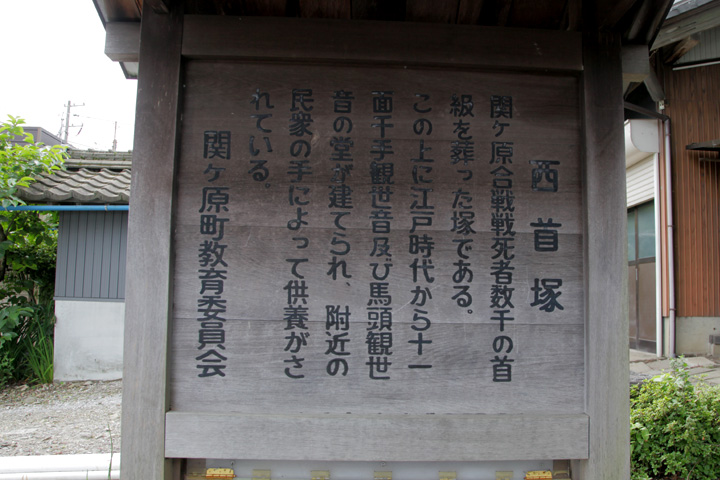 西首塚
関ケ原合戦戦死者数千の首
級を葬った塚である。
この上に江戸時代から十一
面千手観世音及び馬頭観世
音の堂が建てられ、附近の
民衆の手によって供養がさ
れている。
関ケ原町教育委員会